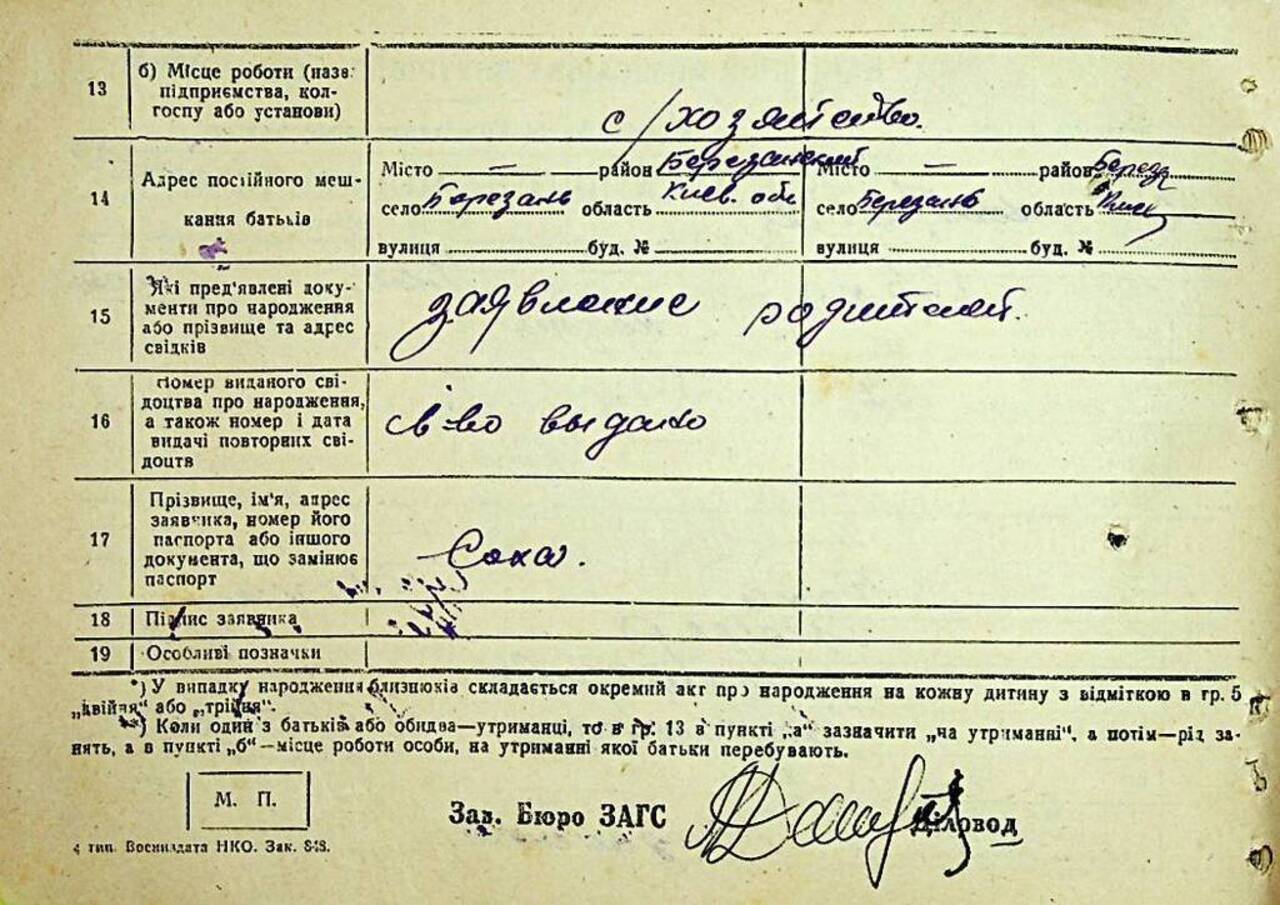 13
б) Місце роботи (назва
підприємства, кол-
госпу або установи)
с/хозяйство.
14
Адрес постійного меш-
кання батьків
Місто — район Березанский Місто — район Берез
село Березань область Киев. обл село Березань область Киев
вулиця буд. № вулиця буд. №
15
Які пред'явлені доку-
менти про народження
або прізвище та адрес
свідків
заявление родителей.
16
Номер виданого сві-
доцтва про народження,
а також номер і дата
видачі повторних сві-
доцтв
св-во выдано
17
Прізвище, ім'я, адрес
заявника, номер його
паспорта або іншого
документа, що замінює
паспорт
18
Підпис заявника
19
Особливі позначки
*) У випадку народження близнюків складається окремий акт про народження на кожну дитину з відміткою в гр. 5
„двійня“ або „трійня“.
**) Коли один з батьків або обидва—утриманці, то в гр. 13 в пункті „а“ зазначити „на утриманні“, а потім—рід за-
нять, а в пункті „б“—місце роботи особи, на утриманні якої батьки перебувають.
М. П.
Зав. Бюро ЗАГС
Діловод
4 тип. Воениздата НКО. Зак. 848.